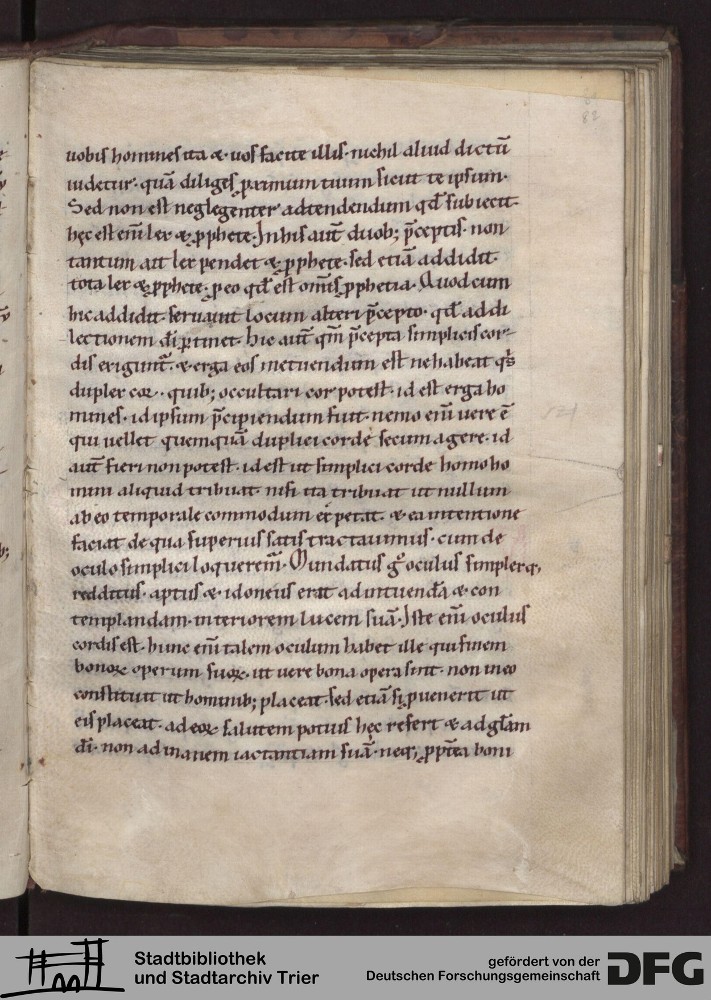 82
uobis homines ita & uos facite illis· nichil aliud dictū
uidetur· quā diliges p̱ximum tuum sicut te ipsum·
Sed non est neglegenter adtendendum qđ subiecit·
hęc est enī lex & p̱phetę· In his aut̄ duob; p̄ceptis· non
tantum ait lex pendet & p̱phetę· sed etiā addidit·
tota lex & p̱phetę· p̱ eo qđ est om̄is p̱phetia· Quod cum
hic addidit· seruauit locum alteri p̄cepto· qđ ad di
lectionem dī ꝑtinet· Hic aut̄ qm̄ p̄cepta simplicis cor-
dis exigunt̄· & erga eos metuendum est ne habeat qͥs
duplex cor· quib; occultari cor potest· id est erga ho
mines· id ipsum p̄cipiendum fuit· nemo enī uere ē
qui uellet quemquā duplici corde secum agere· id
aut̄ fieri non potest· id est ut simplici corde homo ho
mini aliquid tribuat· nisi ita tribuat ut nullum
ab eo temporale commodum expetat· & ea intentione
faciat de qua superius satis tractauimus· cum de
oculo simplici loquerem̄· Mundatus gͦ oculus simplexq;
redditus· aptus & idoneus erit ad intuendā & con
templandam· interiorem lucem suā· Iste enī oculus
cordis est· hunc enī talem oculum habet ille qui finem
bonoꝝ operum suoꝝ· ut uere bona opera sint· non in eo
constituit ut hominib; placeat· sed etiā si p̱uenerit ut
eis placeat· ad eoꝝ salutem potius hęc refert & ad gl̄am
dī· non ad inanem iactantiam suā· neq; p̱pt̄ea boni
Stadtbibliothek
und Stadtarchiv Trier
gefördert von der
Deutschen Forschungsgemeinschaft
DFG